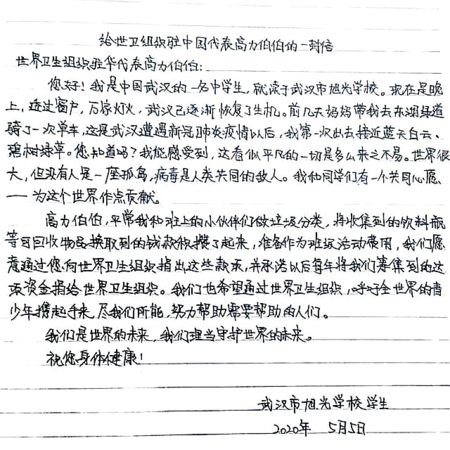 给世卫组织驻中国代表高力伯伯的一封信
世界卫生组织驻华代表高力伯伯:
您好!我是中国武汉的一名中学生,就读于武汉市旭光学校。现在是晚
上,透过窗户,万家灯火,武汉已逐渐恢复了生机。前几天妈妈带我去东湖绿道
骑了一次单车,这是武汉遭遇新冠肺炎疫情以后,我第一次出去接近蓝天白云、
碧树绿草。您知道吗?我能感受到,这看似平凡的一切是多么来之不易。世界很
大,但没有人是一座孤岛,病毒是人类共同的敌人。我和同学们有一个共同心愿
——为这个世界作点贡献。
高力伯伯,平常我和班上的小伙伴们做垃圾分类,将收集到的饮料瓶
等可回收物品换取到的钱款攒了起来,准备作为班级活动费用,我们愿
意通过您,向世界卫生组织捐出这些款项,并承诺以后每年将我们筹集到的这
项资金捐给世界卫生组织。我们也希望通过世界卫生组织,呼吁全世界的青
少年携起手来,尽我们所能,努力帮助需要帮助的人们。
我们是世界的未来,我们理当守护世界的未来。
祝您身体健康!
武汉市旭光学校学生
2020年 5月5日